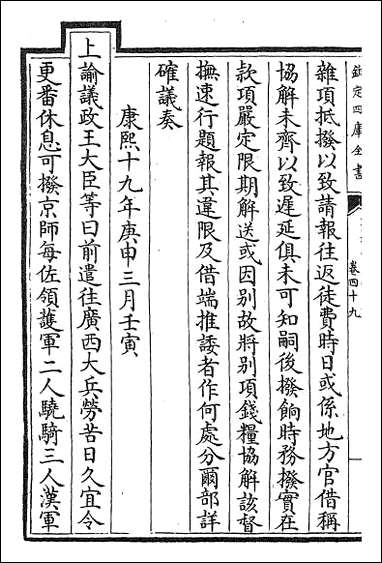 欽定四庫全書
卷四十九
雜項抵撥以致請報往返徒費時日或係地方官借稱
協解未齊以致遲延俱未可知嗣後撥餉時務撥實在
款項嚴定限期解送或因别故將别項錢糧協解該督
撫速行題報其違限及借端推諉者作何處分爾部詳
確議奏
康熙十九年庚申三月壬寅
上諭議政王大臣等曰前遣往廣西大兵勞苦日久宜令
更番休息可撥京師每佐領護軍二人驍騎三人漢軍